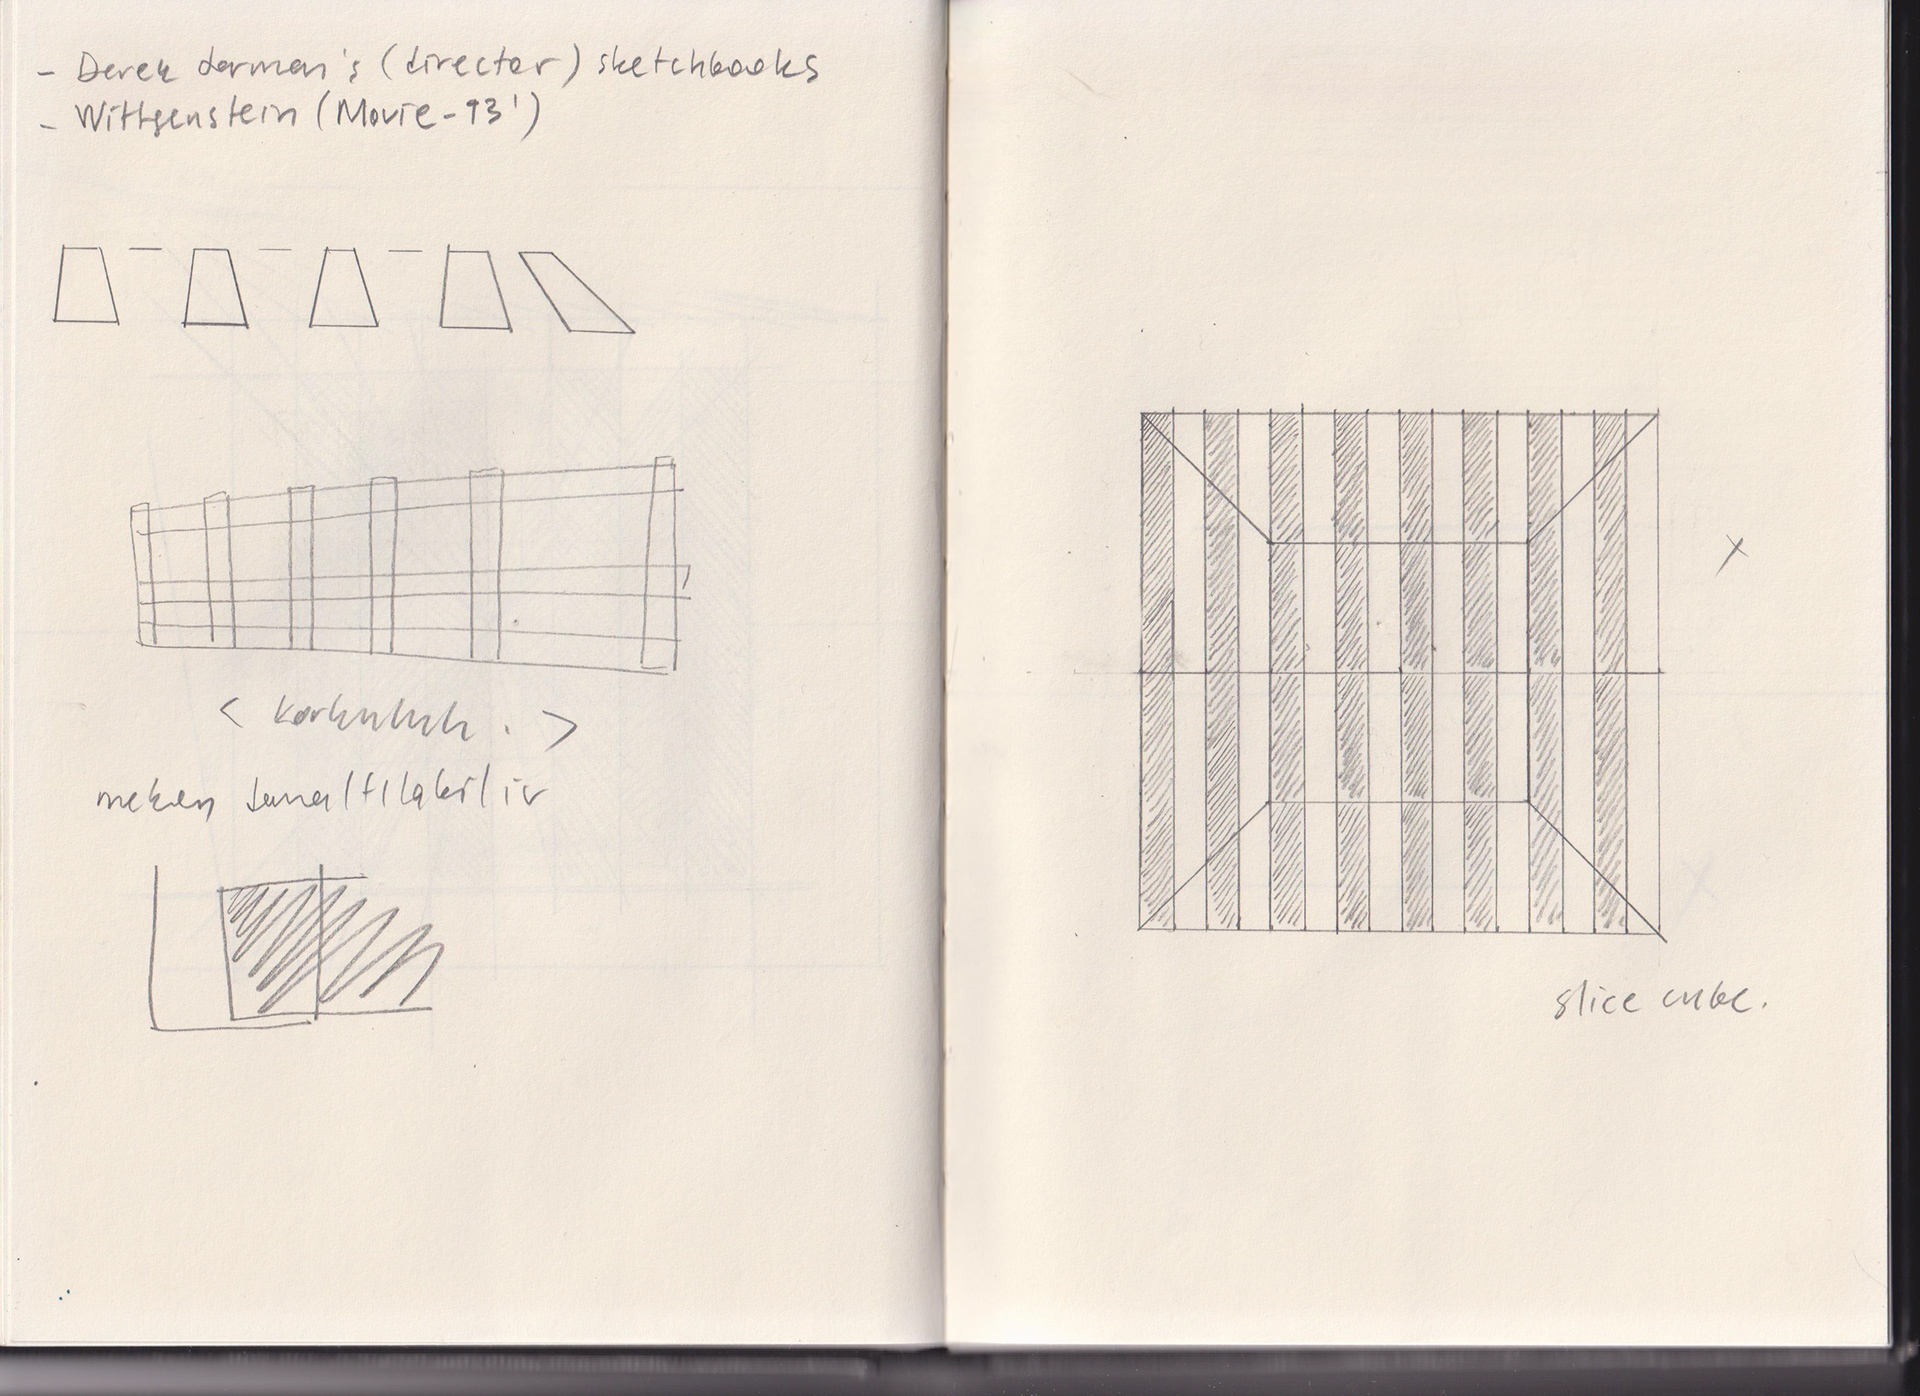 - Derek Jarman's (director) sketchbooks
- Wittgenstein (Movie-93')
< korkuluk. >
mekan
slice cube.